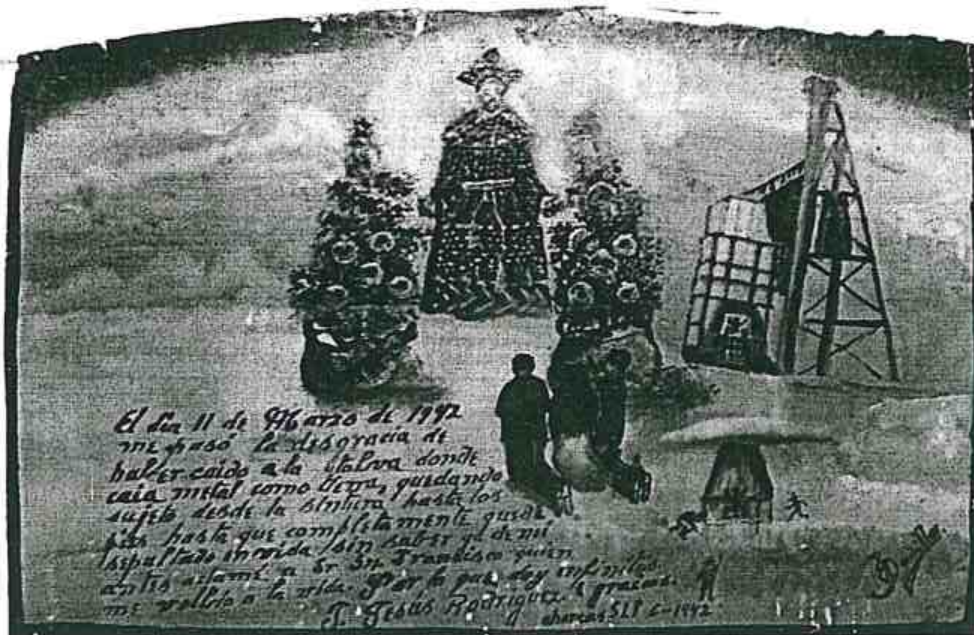 El dia 11 de Marzo de 1942
me pasó la desgracia de
haber caido a la tolva donde
caia metal como tierra, quedando
sujeto desde la sintura hasta los
pies hasta que completamente quede
sepultado en vida, sin saber ya de mi
antes aclamé a Sr Sn Francisco quien
me volbio a la vida. Por lo que doy infinitas
gracias.
J. Jesús Rodriguez.
charcas SLP 6-1942